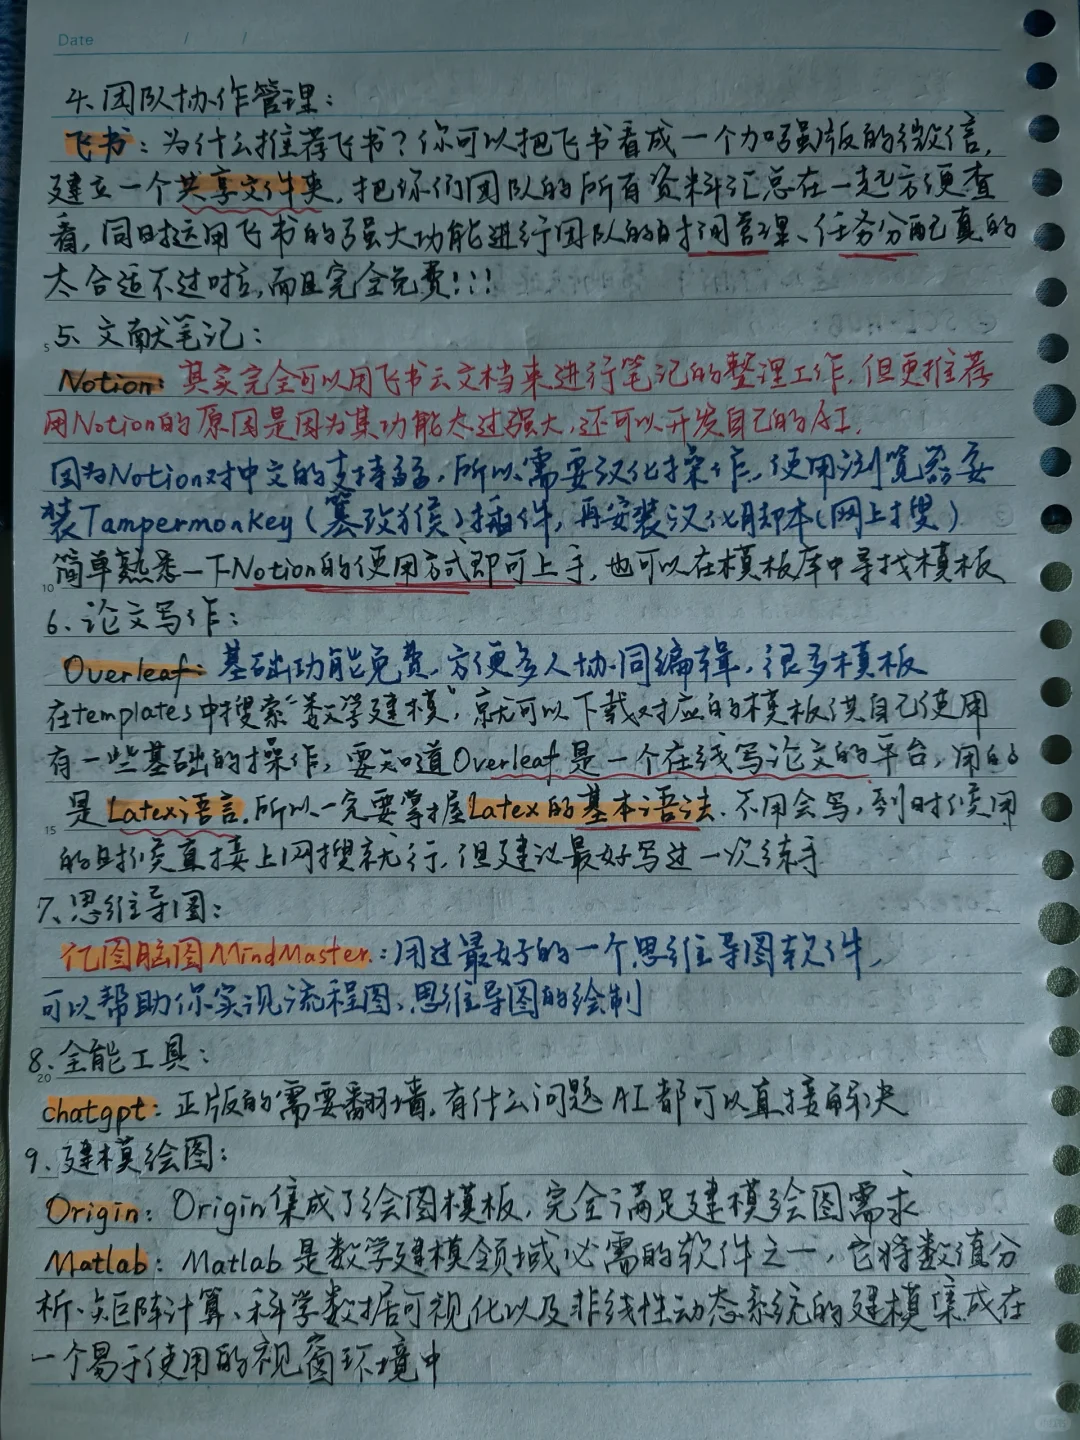 Date / /
4、团队协作管理：
飞书：为什么推荐飞书？你可以把飞书看成一个加强版的微信，
建立一个共享文件夹，把你们团队的所有资料汇总在一起方便查
看，同时运用飞书的强大功能进行团队的时间管理、任务分配真的
太合适不过啦，而且完全免费！！！
5 5、文献笔记：
Notion：其实完全可以用飞书云文档来进行笔记的整理工作，但更推荐
用Notion的原因是因为其功能太过强大，还可以开发自己的
因为Notion对中文的支持，所以需要汉化操作，使用浏览器安
装Tampermonkey（篡改猴）插件，再安装汉化脚本（网上搜）
10 简单熟悉一下Notion的使用方式即可上手，也可以在模板库中寻找模板
6、论文写作：
Overleaf：基础功能免费，方便多人协同编辑，很多模板
在templates中搜索“数学建模”，就可以下载对应的模板供自己使用
有一些基础的操作，要知道Overleaf是一个在线写论文的平台，用的
15 是Latex语言，所以一定要掌握Latex的基本语法，不用会写，到时候用
的时候直接上网搜就行，但建议最好写过一次练手
7、思维导图：
亿图脑图MindMaster：用过最好的一个思维导图软件，
可以帮助你实现流程图、思维导图的绘制
8、全能工具：
20 chatgpt：正版的需要翻墙，有什么问题AI都可以直接解决
9、建模绘图：
Origin：Origin集成了绘图模板，完全满足建模绘图需求
Matlab：Matlab是数学建模领域必需的软件之一，它将数值分
析、矩阵计算、科学数据可视化以及非线性动态系统的建模集成在
一个易于使用的视窗环境中